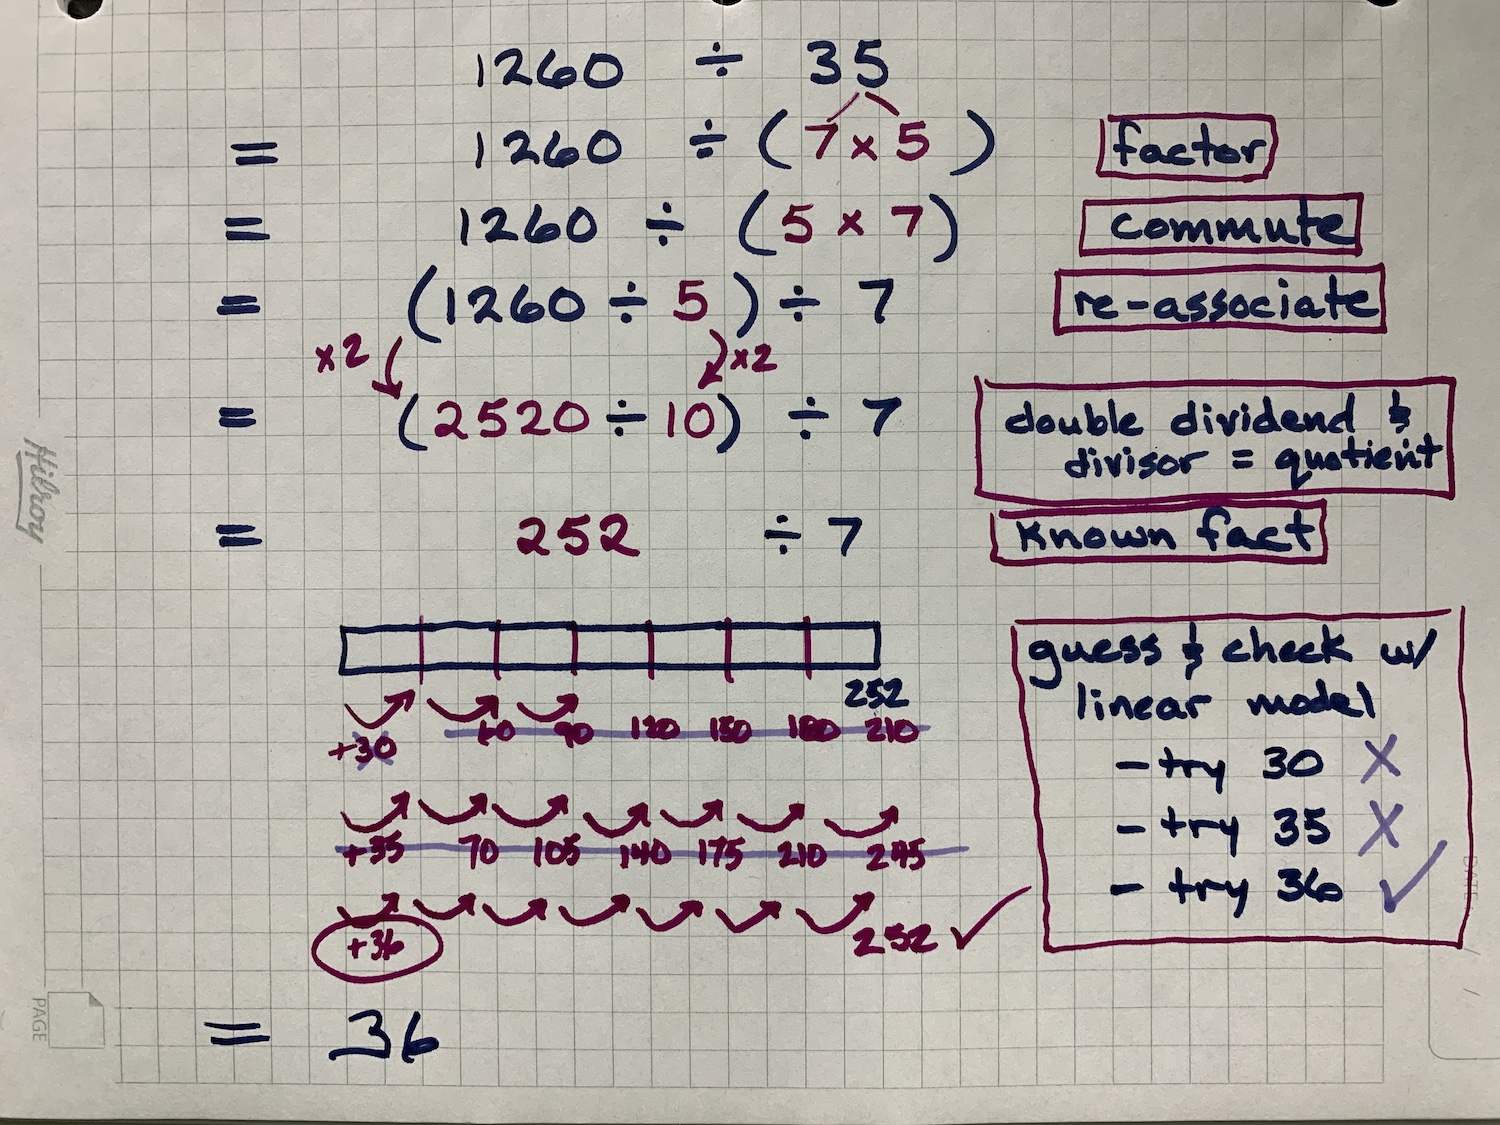 1260 ÷ 35
= 1260 ÷ (7 × 5) factor
= 1260 ÷ (5 × 7) commute
= (1260 ÷ 5) ÷ 7 re-associate
×2 ×2
= (2520 ÷ 10) ÷ 7 double dividend &
divisor = quotient
= 252 ÷ 7 known fact
252
+30 60 90 120 150 180 210
+35 70 105 140 175 210 245
+36 252 ✓
guess & check w/
linear model
- try 30 X
- try 35 X
- try 36 ✓
= 36
Hilroy
PAGE
DATE